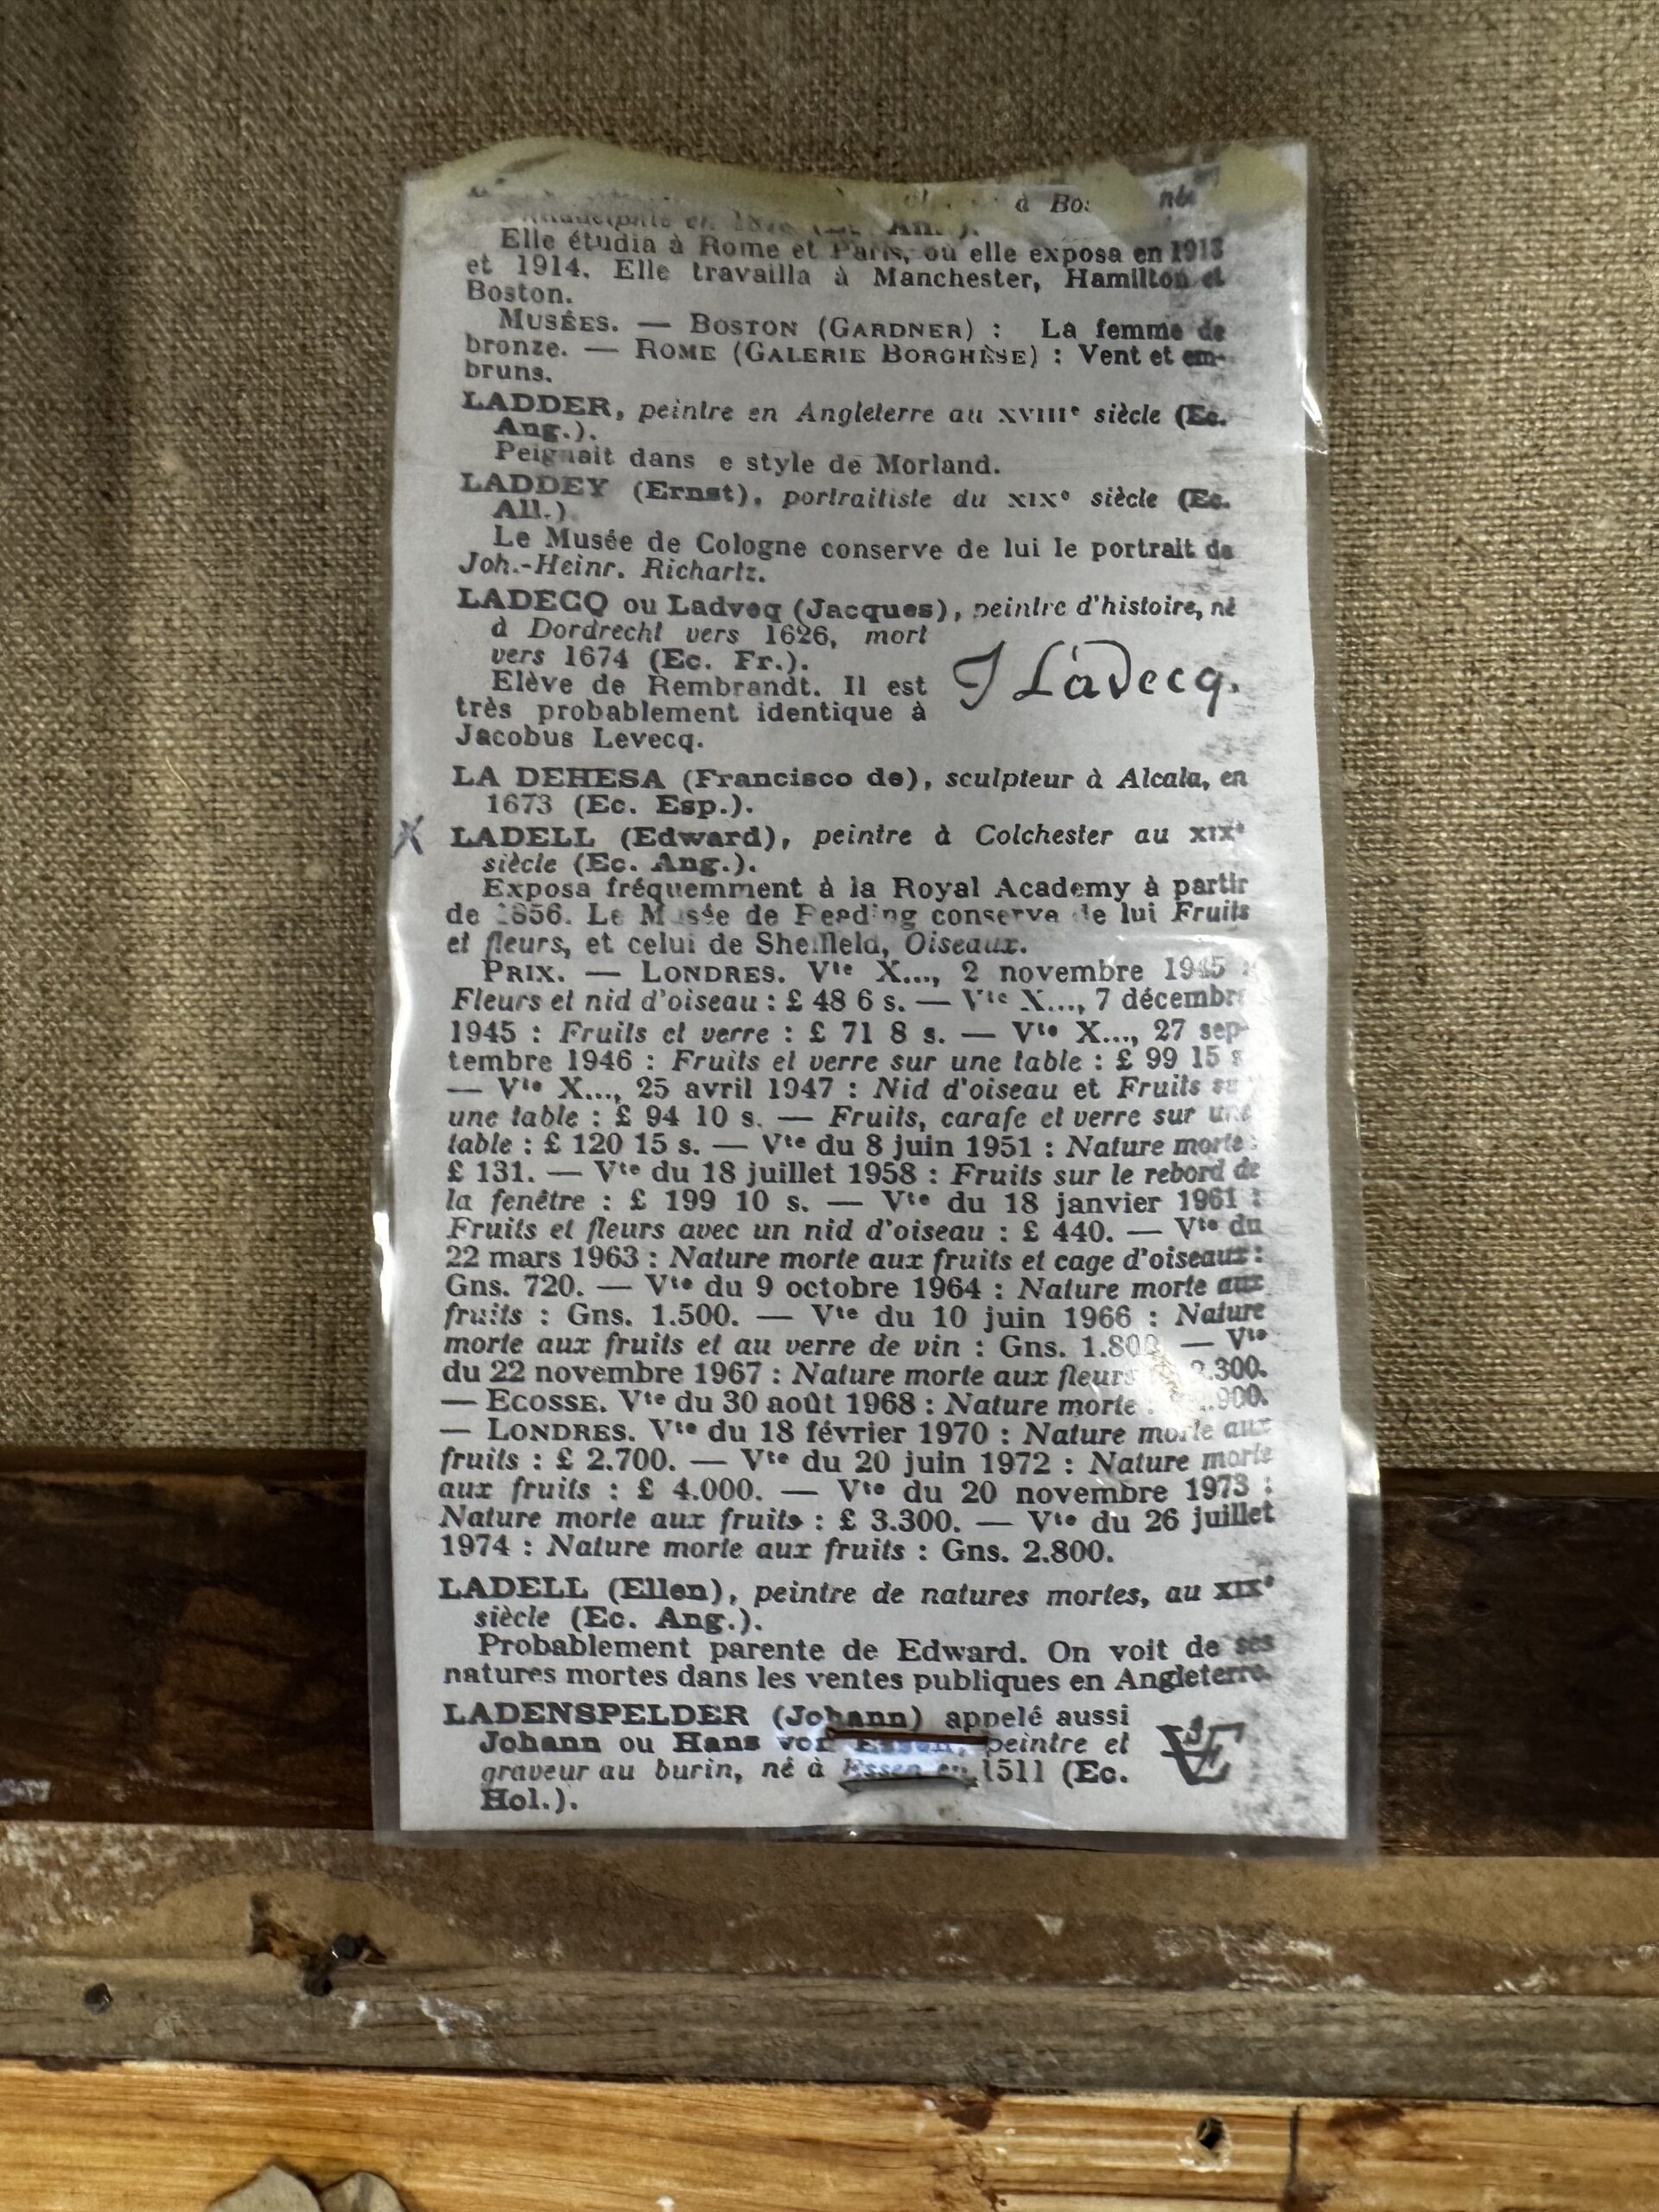 à Bos né
en
Elle étudia à Rome et Paris, où elle exposa en 1913
et 1914. Elle travailla à Manchester, Hamilton et
Boston.
MUSÉES. — BOSTON (GARDNER) : La femme de
bronze. — ROME (GALERIE BORGHÈSE) : Vent et em-
bruns.
LADDER, peintre en Angleterre au XVIIIe siècle (Ec.
Ang.).
Peignait dans e style de Morland.
LADDEY (Ernst), portraitiste du XIXe siècle (Ec.
All.)
Le Musée de Cologne conserve de lui le portrait de
Joh.-Heinr. Richartz.
LADECQ ou Ladveq (Jacques), peintre d'histoire, né
à Dordrecht vers 1626, mort
vers 1674 (Ec. Fr.).
Elève de Rembrandt. Il est
très probablement identique à
Jacobus Levecq.
J Ladecq.
LA DEHESA (Francisco de), sculpteur à Alcala, en
1673 (Ec. Esp.).
X LADELL (Edward), peintre à Colchester au XIXe
siècle (Ec. Ang.).
Exposa fréquemment à la Royal Academy à partir
de 1856. Le Musée de Reading conserve de lui Fruits
et fleurs, et celui de Sheffield, Oiseaux.
PRIX. — LONDRES. Vte X..., 2 novembre 1945 :
Fleurs et nid d'oiseau : £ 48 6 s. — Vte X..., 7 décembre
1945 : Fruits et verre : £ 71 8 s. — Vte X..., 27 sep-
tembre 1946 : Fruits et verre sur une table : £ 99 15 s
— Vte X..., 25 avril 1947 : Nid d'oiseau et Fruits sur
une table : £ 94 10 s. — Fruits, carafe et verre sur une
table : £ 120 15 s. — Vte du 8 juin 1951 : Nature morte :
£ 131. — Vte du 18 juillet 1958 : Fruits sur le rebord de
la fenêtre : £ 199 10 s. — Vte du 18 janvier 1961 :
Fruits et fleurs avec un nid d'oiseau : £ 440. — Vte du
22 mars 1963 : Nature morte aux fruits et cage d'oiseaux :
Gns. 720. — Vte du 9 octobre 1964 : Nature morte aux
fruits : Gns. 1.500. — Vte du 10 juin 1966 : Nature
morte aux fruits et au verre de vin : Gns. 1.800 — Vte
du 22 novembre 1967 : Nature morte aux fleurs .300.
— ECOSSE. Vte du 30 août 1968 : Nature morte : .900.
— LONDRES. Vte du 18 février 1970 : Nature morte aux
fruits : £ 2.700. — Vte du 20 juin 1972 : Nature morte
aux fruits : £ 4.000. — Vte du 20 novembre 1973 :
Nature morte aux fruits : £ 3.300. — Vte du 26 juillet
1974 : Nature morte aux fruits : Gns. 2.800.
LADELL (Ellen), peintre de natures mortes, au XIXe
siècle (Ec. Ang.).
Probablement parente de Edward. On voit de ses
natures mortes dans les ventes publiques en Angleterre.
LADENSPELDER (Johann) appelé aussi
Johann ou Hans von Essen, peintre et
graveur au burin, né à Essen en 1511 (Ec.
Hol.).